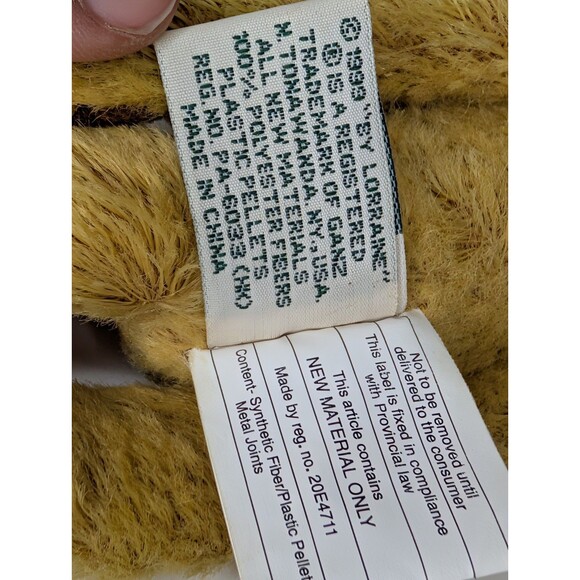 © 1999 BY LORRAINE™
® IS A REGISTERED
TRADEMARK OF GANZ
N TONAWANDA, NY., USA.
ALL NEW MATERIALS
100% POLYESTER FIBERS
PLASTIC PELLETS
REG. NO PA-6033 (HK)
MADE IN CHINA
Not to be removed until
delivered to the consumer
This label is fixed in compliance
with Provincial law
This article contains
NEW MATERIAL ONLY
Made by reg. no. 20E4711
Content- Synthetic Fiber/Plastic Pellet
Metal Joints